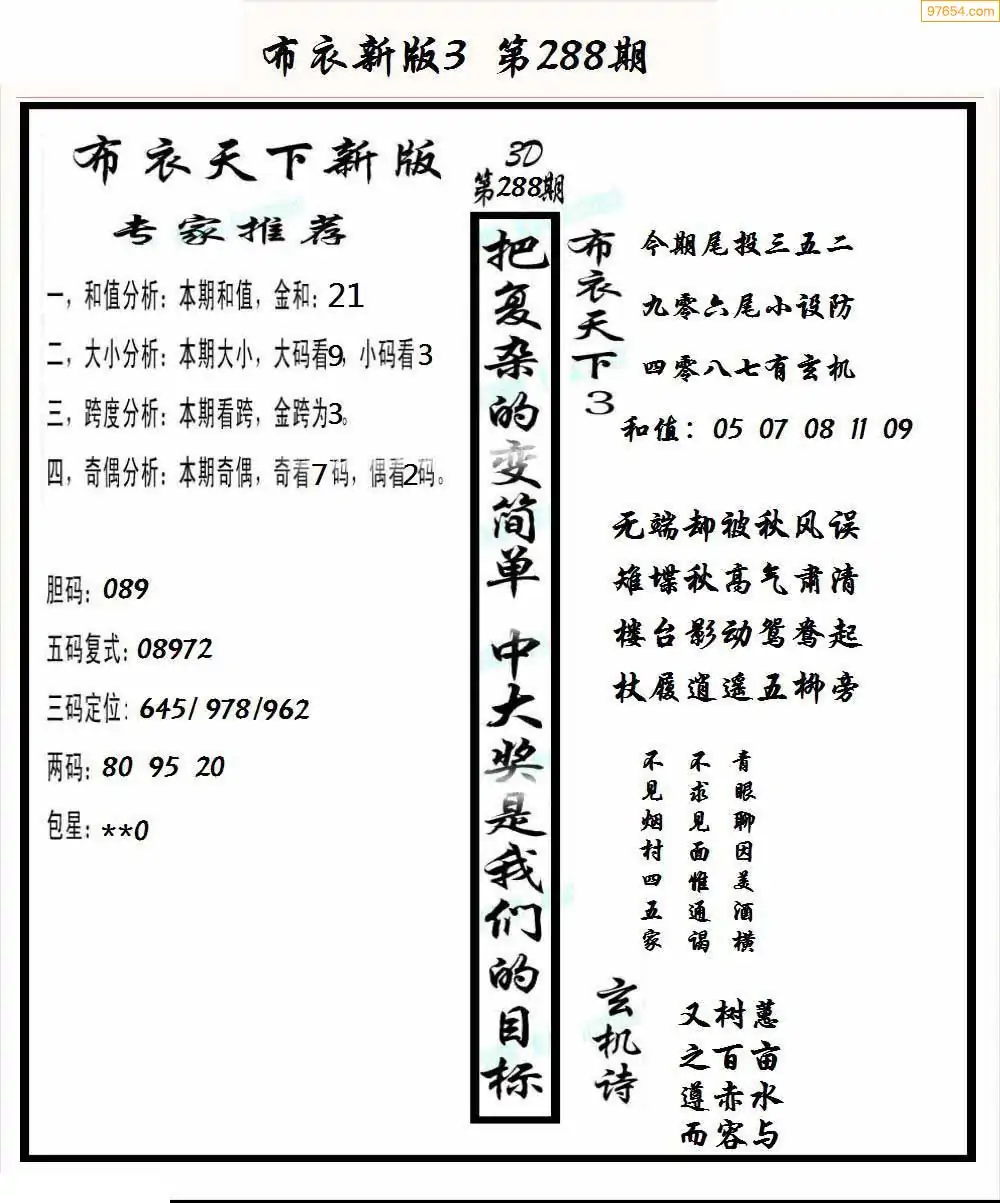 97654.com
布衣新版3 第288期
布衣天下新版
专家推荐
一，和值分析：本期和值，金和：21
二，大小分析：本期大小，大码看9，小码看3
三，跨度分析：本期看跨，金跨为3。
四，奇偶分析：本期奇偶，奇看7码，偶看2码。
胆码：089
五码复式：08972
三码定位：645/ 978/962
两码：80 95 20
包星：**0
3D
第288期
把复杂的变简单 中大奖是我们的目标
布衣天下3
今期尾投三五二
九零六尾小设防
四零八七有玄机
和值：05 07 08 11 09
无端却被秋风误
雉堞秋高气肃清
楼台影动鸳鸯起
杖履逍遥五柳旁
青眼聊因美酒横
不求见面惟通谒
不见烟村四五家
玄机诗
又树蕙
之百亩
遵赤水
而容与